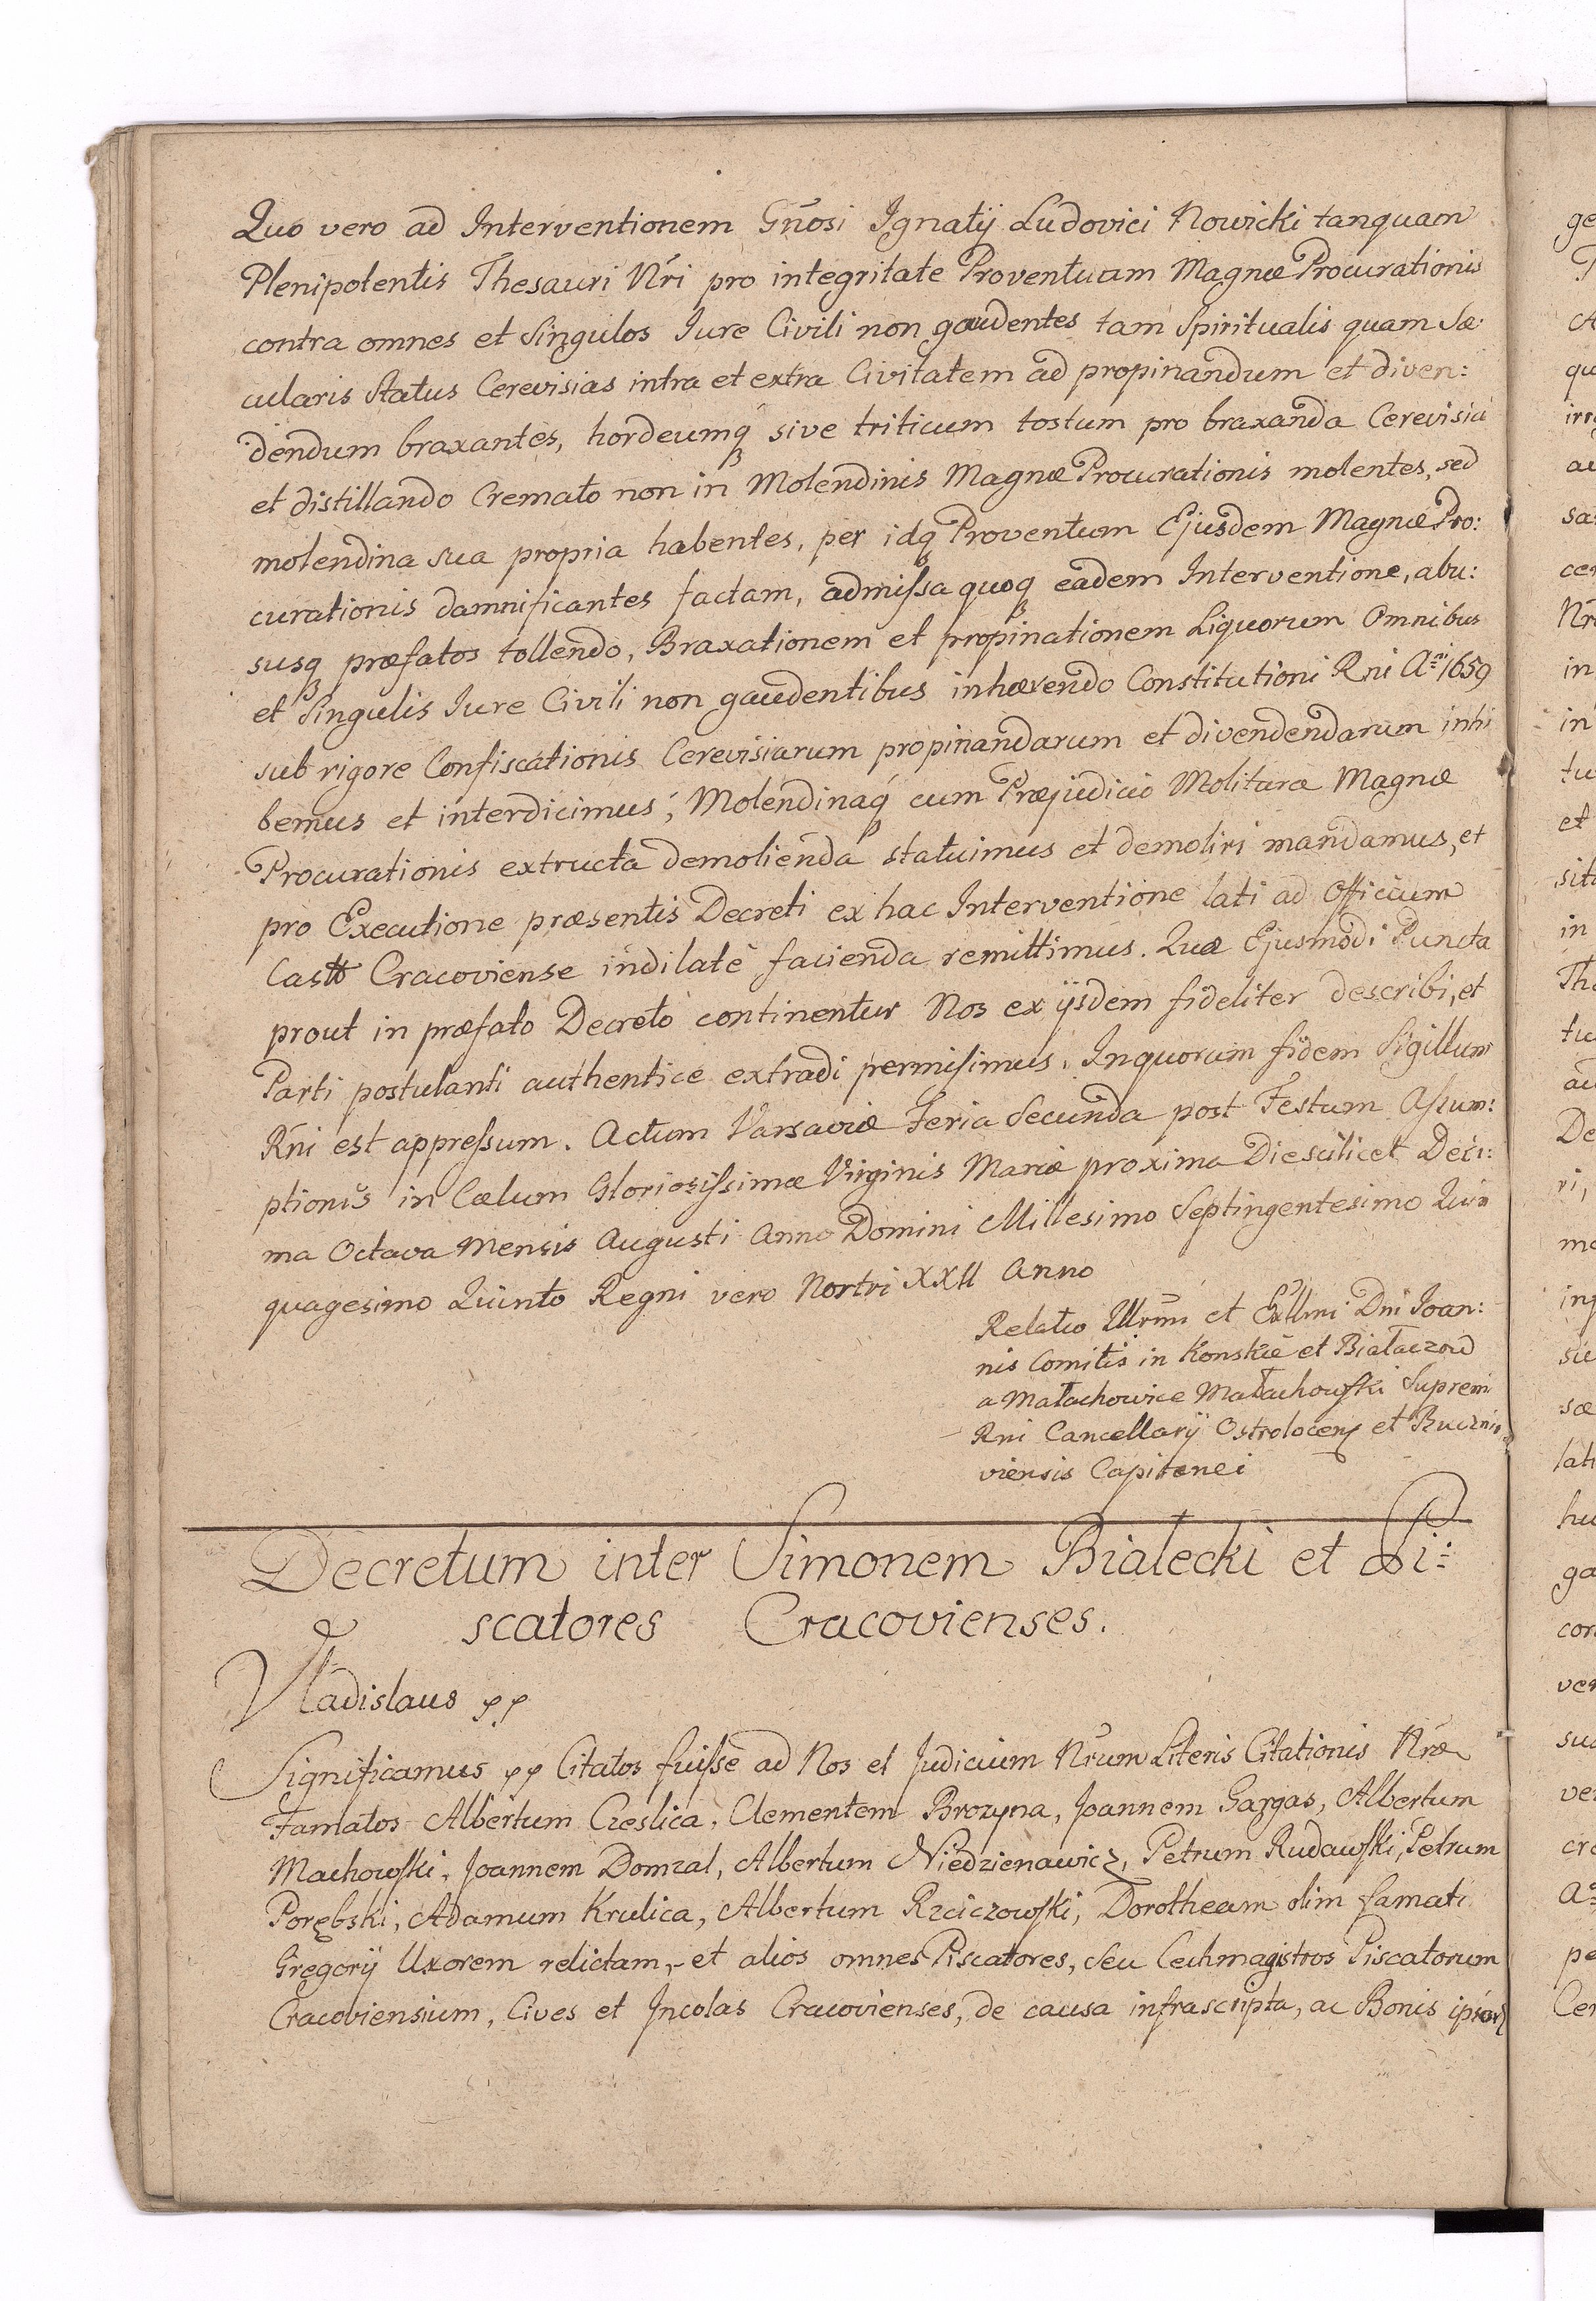 Quo vero ad Interventionem Gn̄osi Ignatij Ludovici Nowicki tanquam
Plenipotentis Thesauri Nr̄i pro integritate Proventuum Magnæ Procurationis
contra omnes et Singulos Iure Civili non gaudentes tam Spiritualis quam Sæ:
cularis Status Cerevisias intra et extra Civitatem ad propinandum et diven:
dendum braxantes, hordeumq₃ sive triticum tostum pro braxanda Cerevisia
et distillando Cremato non in Molendinis Magnæ Procurationis molentes, sed
molendina sua propria habentes, per idq₃ Proventum Ejusdem Magnæ Pro:
curationis damnificantes factam, admissa quoq₃ eadem Interventione, abu:
susq₃ præfatos tollendo, Braxationem et propinationem Liquorum Omnibus
et Singulis Iure Civili non gaudentibus inhærendo Constitutioni Rni A:ni 1659
sub rigore Confiscationis Cerevisiarum propinandarum et divendendarum inhi
bemus et interdicimus; Molendinaq₃ cum Præjudicio Molituræ Magnæ
Procurationis extructa demolienda statuimus et demoliri mandamus, et
pro Executione præsentis Decreti ex hac Interventione lati ad Officium
Castr Cracoviense indilatè facienda remittimus. Quæ Ejusmodi Puncta
prout in præfato Decreto continentur Nos ex ijsdem fideliter describi, et
Parti postulanti authentice extradi permisimus. Inquorum fidem Sigillum
Rn̄i est appressum. Actum Varsaviæ Feria Secunda post Festum Assum:
ptionis in Cælum Gloriosissimæ Virginis Mariæ proxima Die scilicet Deci:
ma Octava Mensis Augusti Anno Domini Millesimo Septingentesimo Quin
quagesimo Quinto Regni vero Nostri XXII Anno
Relatio Illrmi et Exllmi Dni Ioan:
nis Comitis in Konskie et Białaczow
a Małachowice Małachowski Supremi
Rni Cancellarij Ostroloceñ et
viensis Capitanei
Decretum inter Simonem Białecki et Pi:
scatores Cracovienses.
Vladislaus pp
Significamus pp Citatos fuisse ad Nos et Judicium Nr̄um Literis Citationis Nr̄æ
Famatos Albertum Czeslica, Clementem Brozyna, Joannem Gazgas, Albertum
Machowski, Joannem Domzal, Albertum Niedzienawicz, Petrum Rudawski, Petrum
Porębski, Adamum Krulica, Albertum Rzciczowski, Dorotheam olim famati
Gregorij Uxorem relictam, et alios omnes Piscatores, seu Cechmagistros Piscatorum
Cracoviensium, Cives et Incolas Cracovienses, de causa infrascripta, ac Bonis ipsor